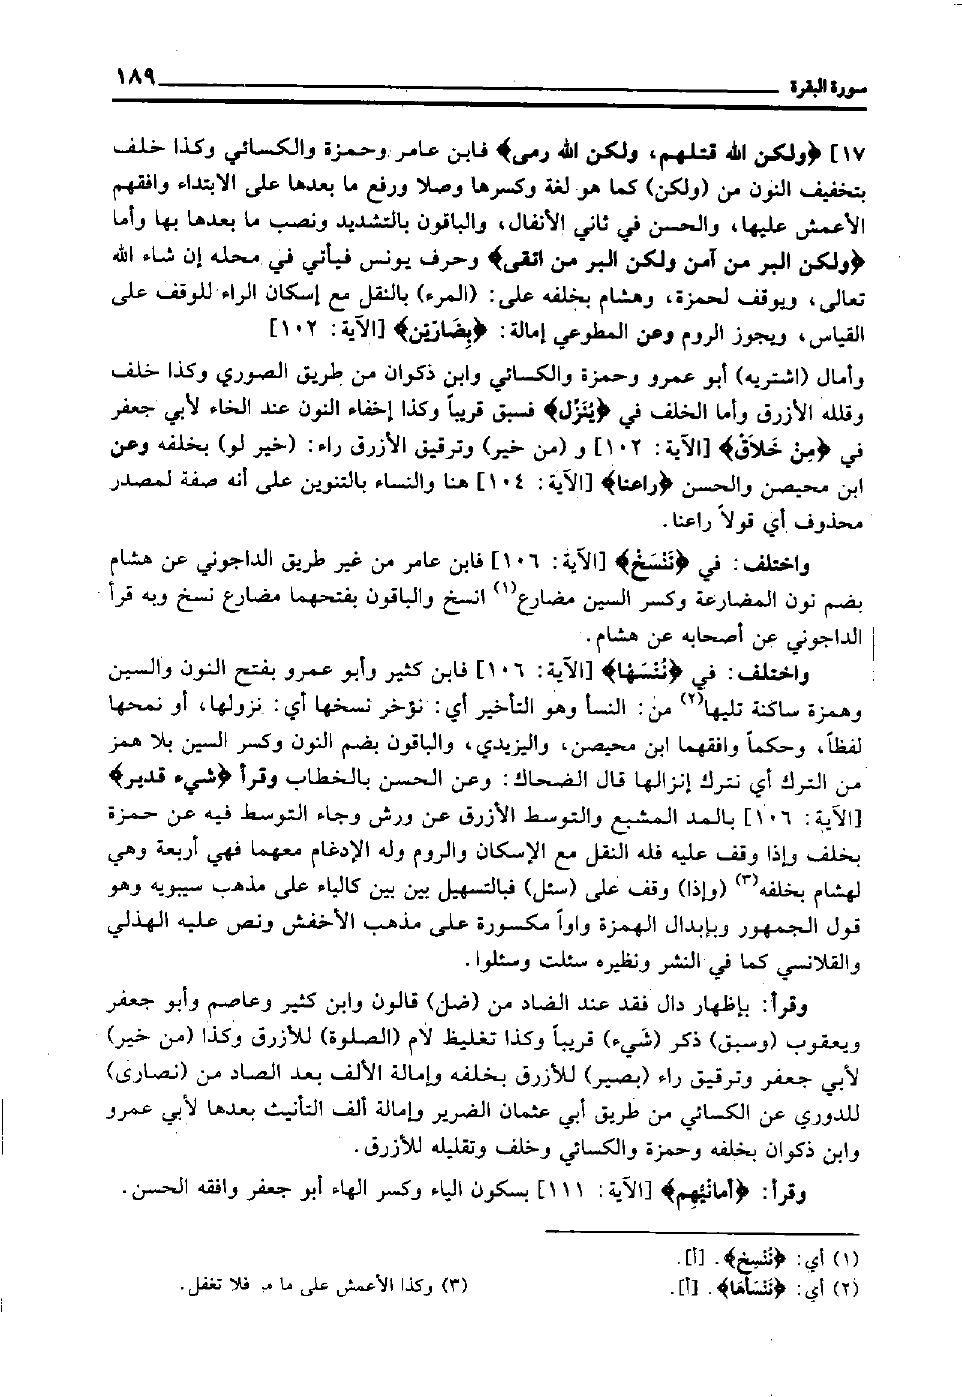 سورة البقرة ١٨٩
١٧] ﴿ولكن الله قتلهم، ولكن الله رمى﴾ فابن عامر وحمزة والكسائي وكذا خلف
بتخفيف النون من (ولكن) كما هو لغة وكسرها وصلا ورفع ما بعدها على الابتداء وافقهم
الأعمش عليها، والحسن في ثاني الأنفال، والباقون بالتشديد ونصب ما بعدها بها وأما
﴿ولكن البر من آمن ولكن البر من اتقى﴾ وحرف يونس فيأتي في محله إن شاء الله
تعالى، ويوقف لحمزة، وهشام بخلفه على: (المرء) بالنقل مع إسكان الراء للوقف على
القياس، ويجوز الروم وعن المطوعي إمالة: ﴿بِضَارّين﴾ [الآية: ١٠٢]
وأمال (اشتريه) أبو عمرو وحمزة والكسائي وابن ذكوان من طريق الصوري وكذا خلف
وقلله الأزرق وأما الخلف في ﴿يُنَزّل﴾ فسبق قريباً وكذا إخفاء النون عند الخاء لأبي جعفر
في ﴿مِنْ خَلاَقْ﴾ [الآية: ١٠٢] و (من خير) وترقيق الأزرق راء: (خير لو) بخلفه وعن
ابن محيصن والحسن ﴿راعنا﴾ [الآية: ١٠٤] هنا والنساء بالتنوين على أنه صفة لمصدر
محذوف أي قولاً راعنا.
واختلف: في ﴿نَنْسَخْ﴾ [الآية: ١٠٦] فابن عامر من غير طريق الداجوني عن هشام
بضم نون المضارعة وكسر السين مضارع(١) انسخ والباقون بفتحهما مضارع نسخ وبه قرأ
الداجوني عن أصحابه عن هشام.
واختلف: في ﴿نُنْسَهَا﴾ [الآية: ١٠٦] فابن كثير وأبو عمرو بفتح النون والسين
وهمزة ساكنة تليها(٢) من: النسأ وهو التأخير أي: نؤخر نسخها أي: نزولها، أو نمحها
لفظاً، وحكماً وافقهما ابن محيصن، واليزيدي، والباقون بضم النون وكسر السين بلا همز
من الترك أي نترك إنزالها قال الضحاك: وعن الحسن بالخطاب وقرأ ﴿شيء قدير﴾
[الآية: ١٠٦] بالمد المشبع والتوسط الأزرق عن ورش وجاء التوسط فيه عن حمزة
بخلف وإذا وقف عليه فله النقل مع الإسكان والروم وله الإدغام معهما فهي أربعة وهي
لهشام بخلفه(٣) (وإذا) وقف على (سئل) فبالتسهيل بين بين كالياء على مذهب سيبويه وهو
قول الجمهور وبإبدال الهمزة واواً مكسورة على مذهب الأخفش ونص عليه الهذلي
والقلانسي كما في النشر ونظيره سئلت وسئلوا.
وقرأ: بإظهار دال فقد عند الضاد من (ضل) قالون وابن كثير وعاصم وأبو جعفر
ويعقوب (وسبق) ذكر (شيء) قريباً وكذا تغليظ لام (الصلوة) للأزرق وكذا (من خير)
لأبي جعفر وترقيق راء (بصير) للأزرق بخلفه وإمالة الألف بعد الصاد من (نصارى)
للدوري عن الكسائي من طريق أبي عثمان الضرير وإمالة ألف التأنيث بعدها لأبي عمرو
وابن ذكوان بخلفه وحمزة والكسائي وخلف وتقليله للأزرق.
وقرأ: ﴿أمانيْهِم﴾ [الآية: ١١١] بسكون الياء وكسر الهاء أبو جعفر وافقه الحسن.
(١) أي: ﴿نُنْسِخ﴾. [أ].
(٢) أي: ﴿نَنْسَأها﴾. [أ]. (٣) وكذا الأعمش على ما مر فلا تغفل.